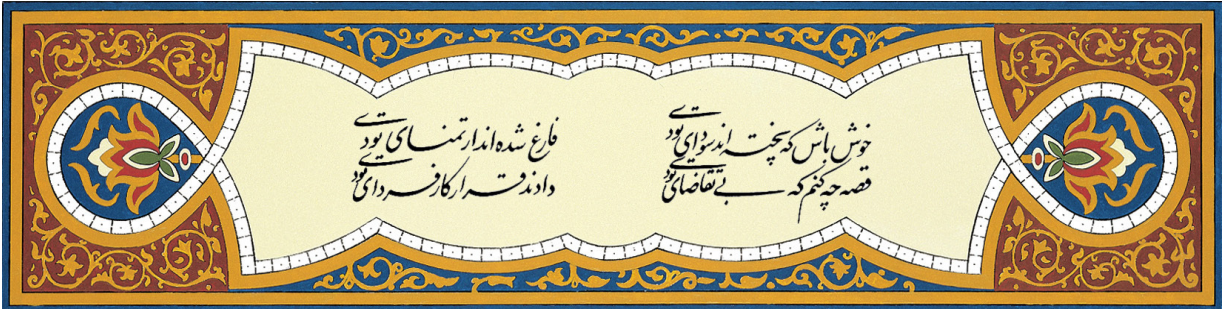 خوش باش که پخته‌اند سودای تو دی
فارغ شده‌اند از تمنای تو دی
قصه چه کنم که بی تقاضای تو دی
دادند قرار کار فردای تو دی